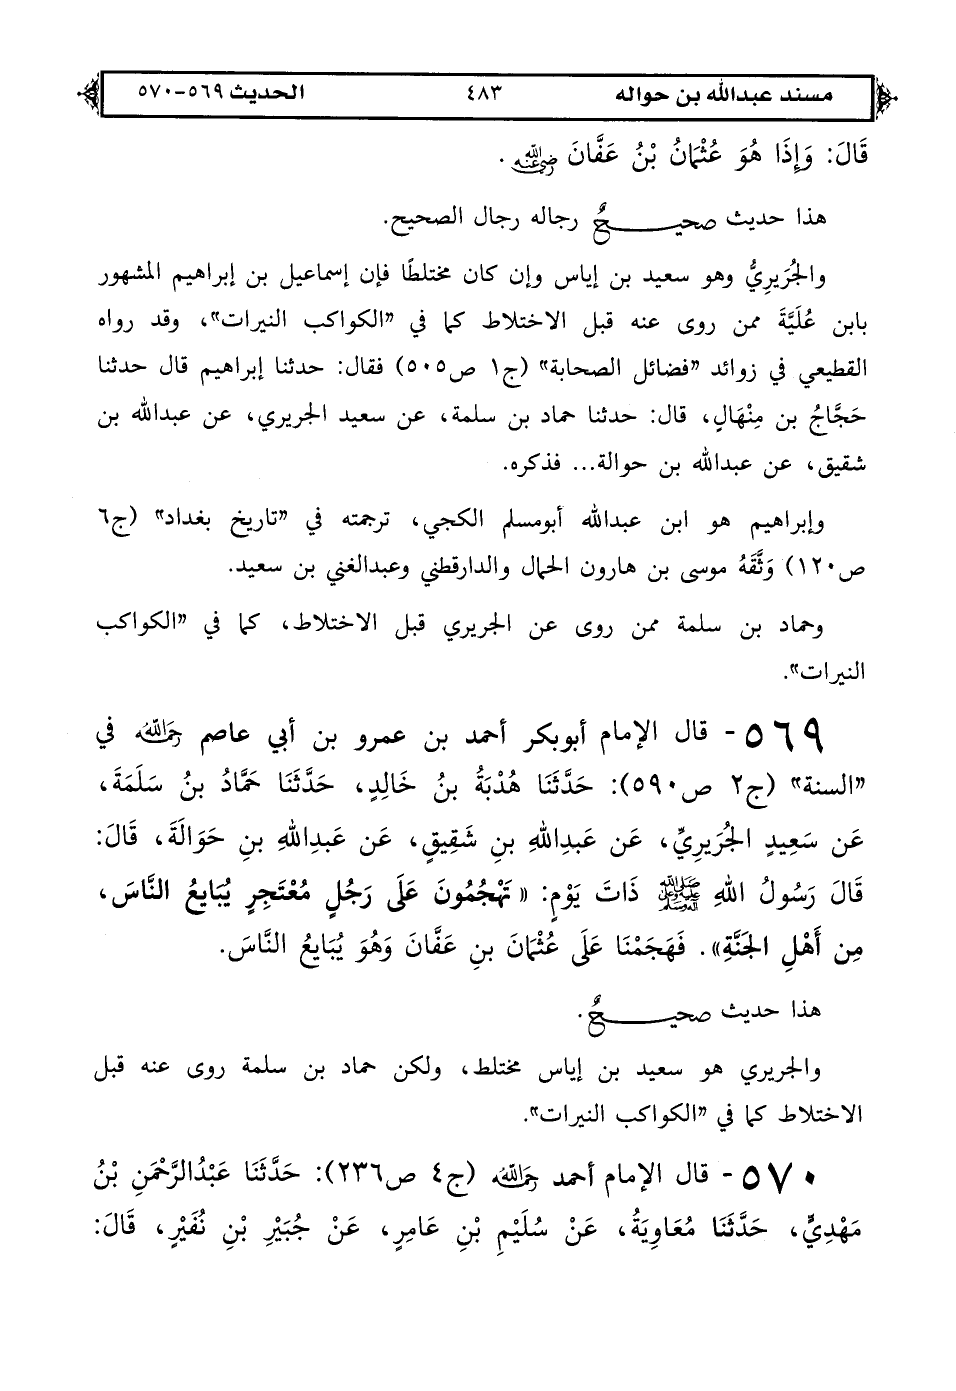 مسند عبدالله بن حواله ٤٨٣ الحديث ٥٦٩-٥٧٠
قَالَ: وَإِذَا هُوَ عُثْمَانُ بْنُ عَفَّانَ رضي الله عنه .
هذا حديث صحيحٌ رجاله رجال الصحيح.
والجُرَيرِيُّ وهو سعيد بن إياس وإن كان مختلطًا فإن إسماعيل بن إبراهيم المشهور
بابن عُلَيَّةَ ممن روى عنه قبل الاختلاط كما في «الكواكب النيرات»، وقد رواه
القطيعي في زوائد «فضائل الصحابة» (ج١ ص٥٠٥) فقال: حدثنا إبراهيم قال حدثنا
حَجَّاجُ بن مِنْهَالٍ، قال: حدثنا حماد بن سلمة، عن سعيد الجريري، عن عبدالله بن
شقيق، عن عبدالله بن حوالة... فذكره.
وإبراهيم هو ابن عبدالله أبومسلم الكجي، ترجمته في «تاريخ بغداد» (ج٦
ص١٢٠) وَثَّقَهُ موسى بن هارون الحمال والدارقطني وعبدالغني بن سعيد.
وحماد بن سلمة ممن روى عن الجريري قبل الاختلاط، كما في «الكواكب
النيرات».
٥٦٩- قال الإمام أبوبكر أحمد بن عمرو بن أبي عاصم رحمه الله في
«السنة» (ج٢ ص٥٩٠): حَدَّثَنَا هُدْبَةُ بنُ خَالِدٍ، حَدَّثَنَا حَمَّادُ بنُ سَلَمَةَ،
عَن سَعِيدٍ الجُرَيرِيِّ، عَن عَبدِاللهِ بنِ شَقِيقٍ، عَن عَبدِاللهِ بنِ حَوَالَةَ، قَالَ:
قَالَ رَسُولُ اللهِ ﷺ ذَاتَ يَوْمٍ: «تَهْجُمُونَ عَلَى رَجُلٍ مُعْتَجِرٍ يُبَايعُ النَّاسَ،
مِن أَهْلِ الجَنَّةِ». فَهَجَمْنَا عَلَى عُثْمَانَ بنِ عَفَّانَ وَهُوَ يُبَايعُ النَّاسَ.
هذا حديث صحيحٌ.
والجريري هو سعيد بن إياس مختلط، ولكن حماد بن سلمة روى عنه قبل
الاختلاط كما في «الكواكب النيرات».
٥٧٠- قال الإمام أحمد رحمه الله (ج٤ ص٢٣٦): حَدَّثَنَا عَبْدُالرَّحْمَنِ بْنُ
مَهْدِيٍّ، حَدَّثَنَا مُعَاوِيَةُ، عَنْ سُلَيْمِ بْنِ عَامِرٍ، عَنْ جُبَيْرِ بْنِ نُفَيْرٍ، قَالَ: